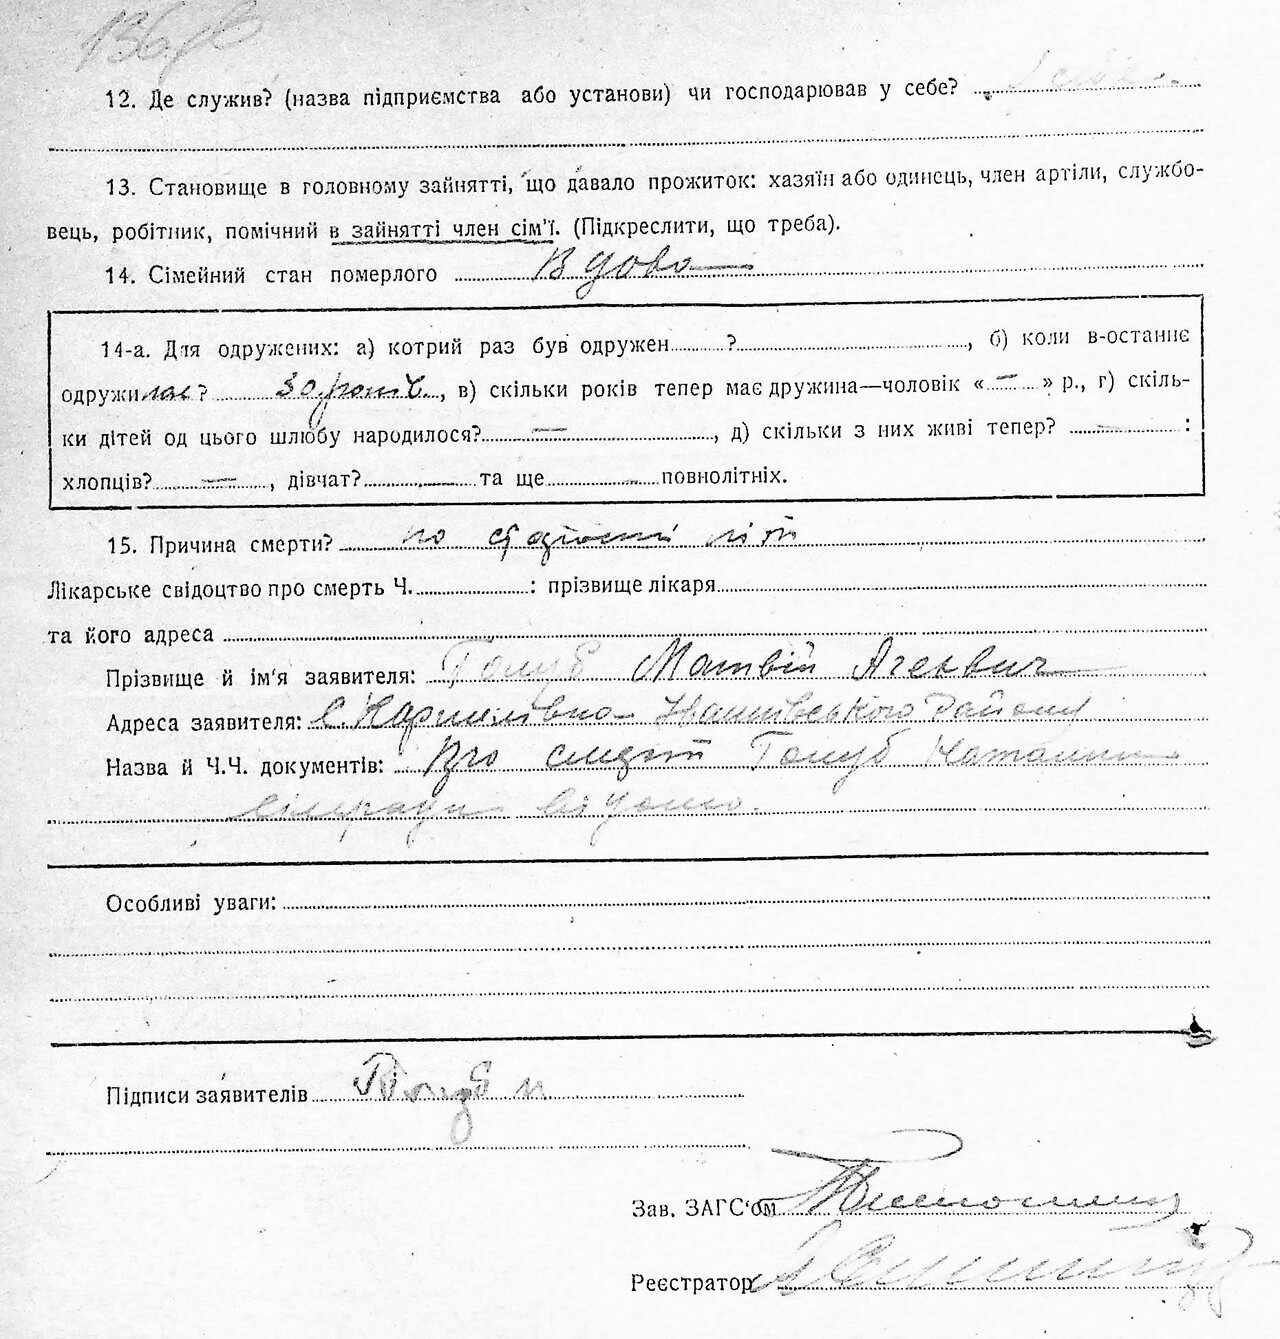 136
12. Де служив? (назва підприємства або установи) чи господарював у себе?
13. Становище в головному зайнятті, що давало прожиток: хазяїн або одинець, член артіли, службо-
вець, робітник, помічний в зайнятті член сім'ї. (Підкреслити, що треба).
14. Сімейний стан померлого Вдова
14-а. Для одружених: а) котрий раз був одружен ?, б) коли в-останнє
одружилас? 30 років, в) скільки років тепер має дружина—чоловік « — » р., г) скіль-
ки дітей од цього шлюбу народилося? —, д) скільки з них живі тепер? — :
хлопців? —, дівчат? — та ще — повнолітніх.
15. Причина смерти? по старості літ
Лікарське свідоцтво про смерть Ч. : прізвище лікаря
та його адреса
Прізвище й ім'я заявителя: Голуб Матвій
Адреса заявителя: с. Кармилівка Району
Назва й Ч.Ч. документів: Про смерть Голуб Наталии
відомо.
Особливі уваги:
Підписи заявителів Голуб
Зав. ЗАГС'ом
Реєстратор